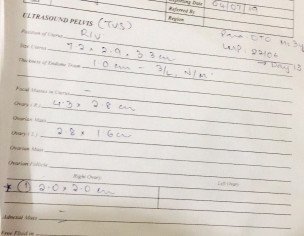 Reporting Date 04/07/19
Referred By
Region
ULTRASOUND PELVIS (TVS)
Position of Uterus R/V
Size Uterus 7.2 x 2.9 x 3.3 cm
Thickness of Endomt 1.0 cm - 3/L
Focal Masses in Uterus -
Ovary ( R ) 4.3 x 2.8 cm
Ovarian Mass
Ovary ( L ) 2.8 x 1.6 cm
Ovarian Mass
Ovarian Follicle
Right Ovary Left Ovary
(1) 2.0 x 2.0 cm
Adnexal Mass -
Free Fluid in
→ Day 13